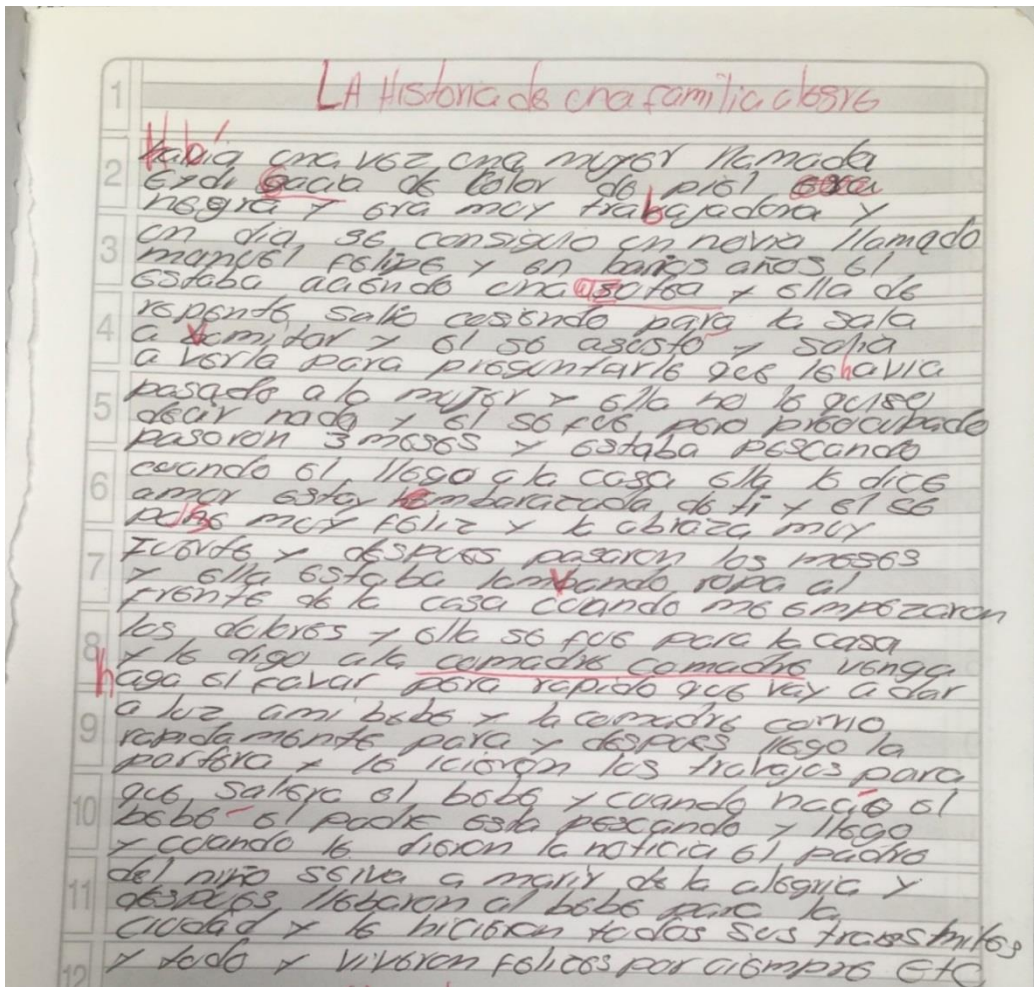 LA Historia de una familia alegre
Había una vez una mujer llamada
de color de piel
negra y era muy trabajadora y
un dia se consiguio un novio llamado
manuel felipe y en barios años el
estaba aciendo una asotea y ella de
repente salio coriendo para la sala
a vomitar y el se asusto y salia
a verla para preguntarle que le havia
pasado a la mujer y ella no le quiso
decir nada y el se fue pero preocupado
pasaron 3 meses y estaba pescando
cuando el llego a la casa ella le dice
amor estoy embarazada de ti y el se
pone muy feliz y la abraza muy
fuerte y despues pasaron los meses
y ella estaba lavando ropa al
frente de la casa cuando me empezaron
los dolores y ella se fue para la casa
y le digo ala comadre comadre venga
haga el favor pero rapido que voy a dar
a luz ami bebe y la comadre corrio
rapidamente para y despues llego la
partera y le icieron los trabajos para
que saliera el bebe y cuando nacio el
bebe el padre esta pescando y llego
y cuando le dieron la noticia el padre
del niño seiva a morir de la alegria y
despues llebaron al bebe para la
ciudad y le hicieron todos sus
y todo y viveron felices por ciempre Etc
1
2
3
4
5
6
7
8
9
10
11
12